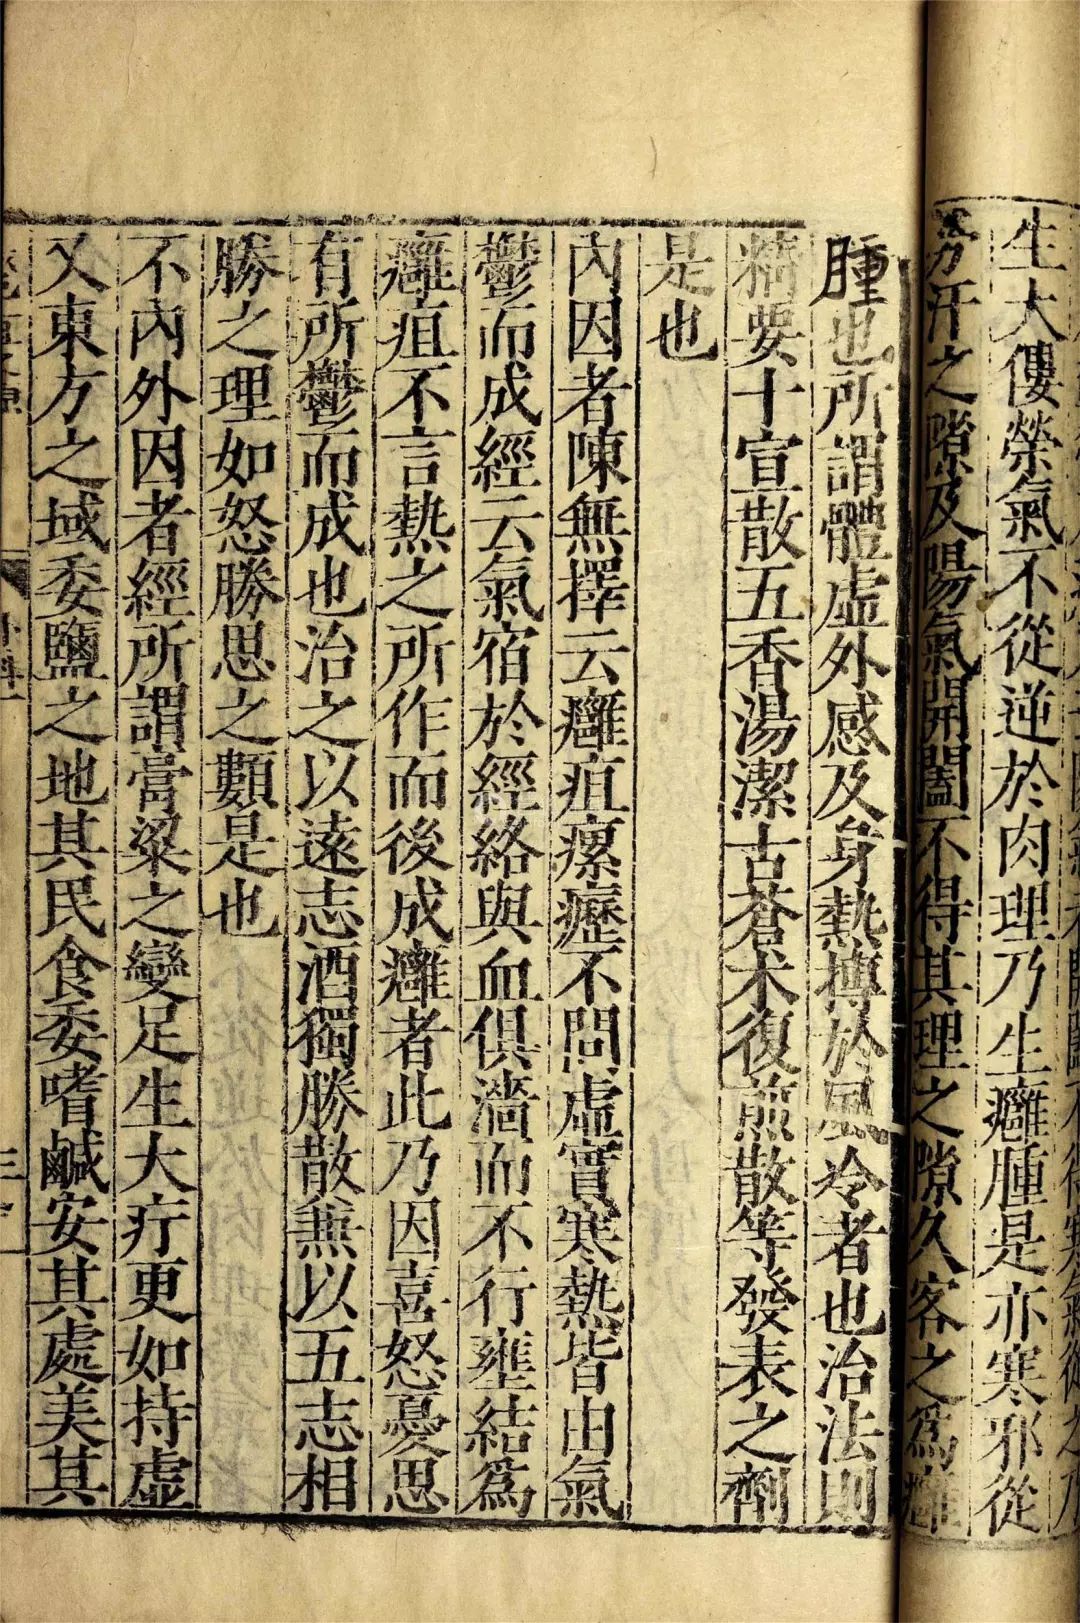 生大僂榮氣不從逆於肉理乃生癰腫是亦寒邪從
汗之隙及陽氣開闔不得其理之隙久客之爲癰
腫也所謂體虛外感及身熱搏於風冷者也治法則
精要十宣散五香湯潔古蒼术復煎散等發表之劑
是也
內因者陳無擇云癰疽瘰癧不問虛實寒熱皆由氣
鬱而成經云氣宿於經絡與血俱濇而不行壅結爲
癰疽不言熱之所作而後成癰者此乃因喜怒憂思
有所鬱而成也治之以遠志酒獨勝散兼以五志相
勝之理如怒勝思之類是也
不內外因者經所謂膏粱之變足生大疔更如持虛
又東方之域委鹽之地其民食委嗜鹹安其處美其
外科